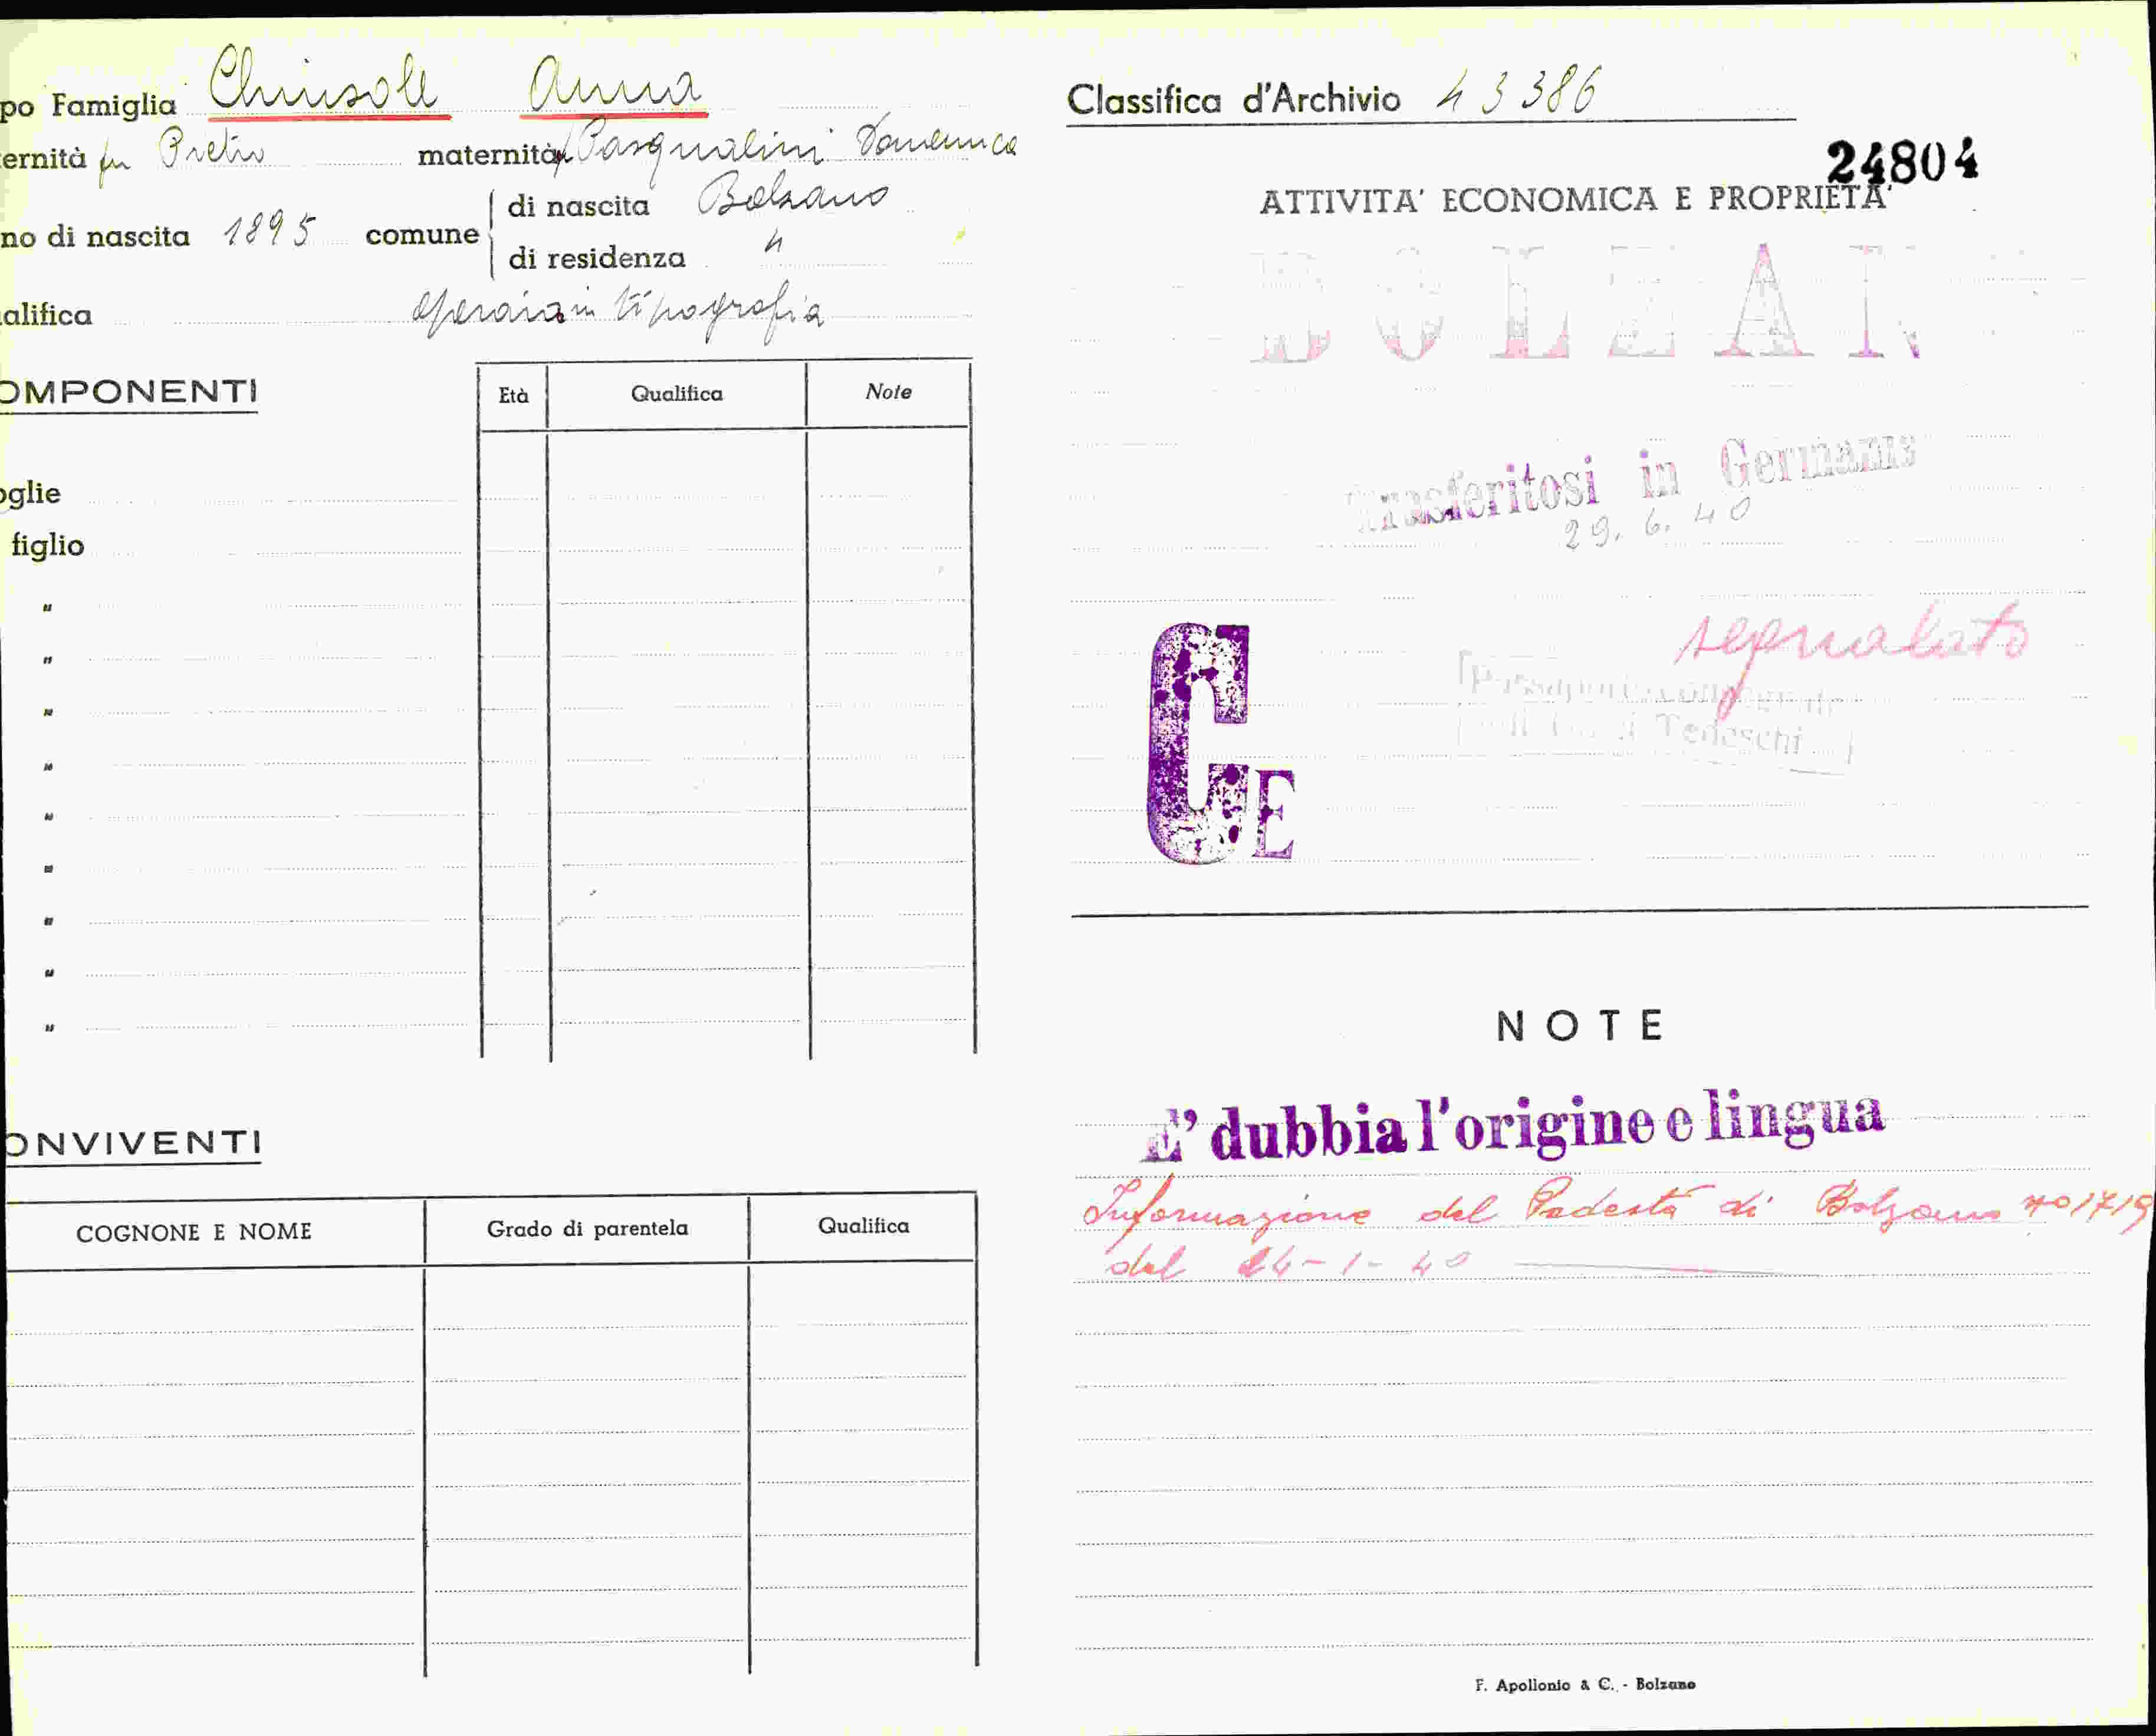 po Famiglia Chiusole Anna
ernità fu Pietro maternità fu Pasqualini Domenica
no di nascita 1895 comune di nascita Bolzano
di residenza "
alifica operaia in tipografia
OMPONENTI
Età Qualifica Note
oglie
figlio
"
"
"
"
"
"
"
"
"
ONVIVENTI
COGNONE E NOME Grado di parentela Qualifica
Classifica d'Archivio 43386
24804
ATTIVITA' ECONOMICA E PROPRIETA'
BOLZAN
trasferitosi in Germania
29.6.40
segnalato
Tedeschi
CE
NOTE
E' dubbia l'origine e lingua
Informazione del Podestà di Bolzano
del 24-1-40
F. Apollonio & C. - Bolzano